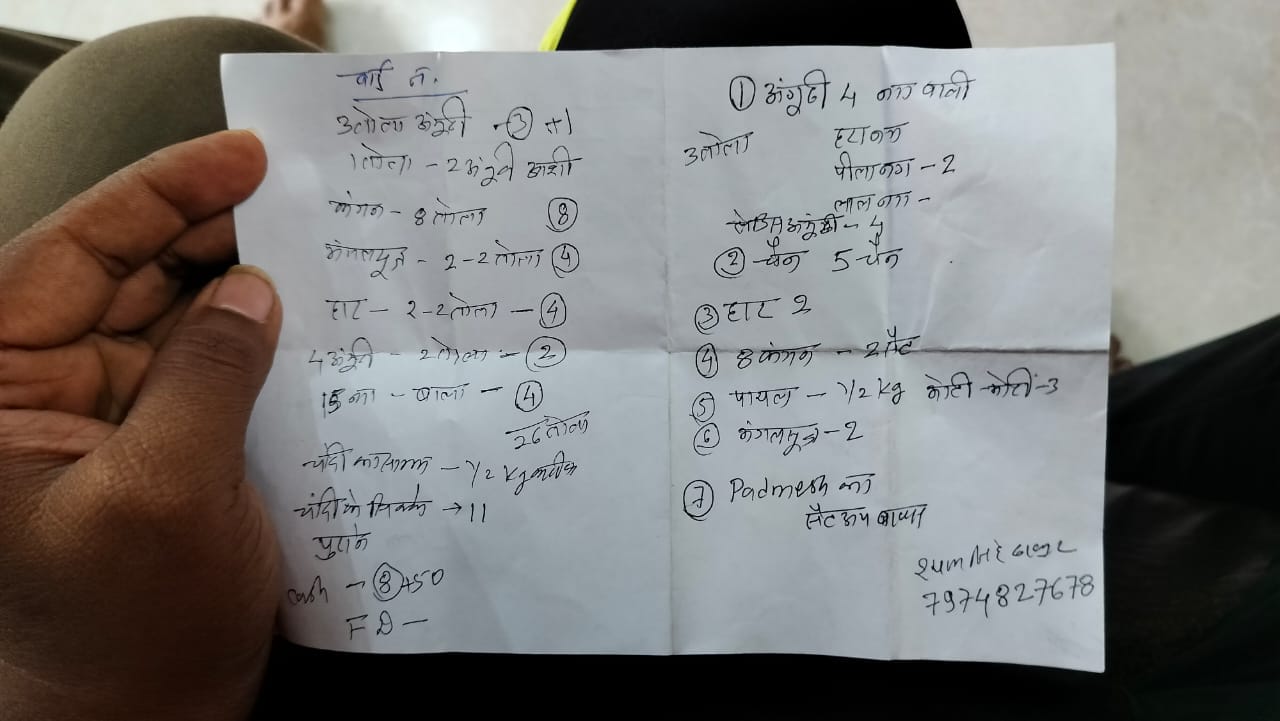 वार्ड नं.
3तोला अंगूठी - ③ +1
1तोला - 2 अंगूठी
कंगन - 8 तोला ⑧
मंगलसूत्र - 2-2 तोला ④
हार - 2-2 तोला - ④
4 अंगूठी - 2 तोला - ②
15 का - बाला - ④
26 तोला
चांदी का सामान - 1/2 kg करीब
चांदी के सिक्के → 11
पुराने
Cash - ⑧ 450
FD -
① अंगूठी 4 नग वाली
3तोला हरा नग
पीला नग - 2
लाल नग -
लेडिस अंगूठी - 4
② चैन 5 चैन
③ हार 2
④ 8 कंगन - 2 सैट
⑤ पायल - 1/2 kg मोटी मोटी - 3
⑥ मंगलसूत्र - 2
⑦ Padmesh का
7974827678